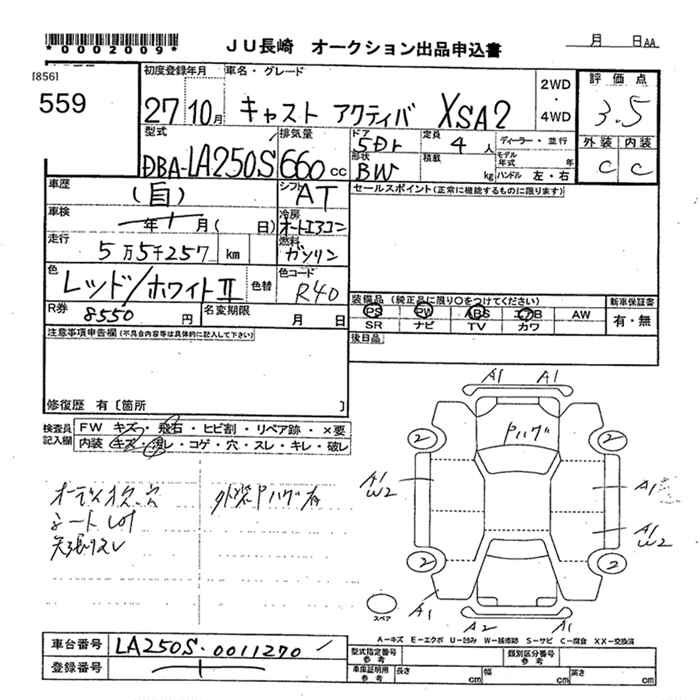 *0002009*
JU長崎 オークション出品申込書
月 日AA
[856]
559
初度登録年月
27 10月
車名・グレード
キャスト アクティバ XSA2
2WD
・
4WD
評価点
3.5
外装 内装
C C
型式
DBA-LA250S
排気量
660 cc
ドア
5Dr
形状
BW
定員
4人
積載
kg
ディーラー・並行
モデル年式 年
ハンドル 左・右
車歴
(自)
シフト
AT
セールスポイント(正常に機能するものに限ります)
車検
年 月( 日)
冷房
オートエアコン
走行
5万5千257 km
燃料
ガソリン
色
レッド/ホワイトⅡ
色替
色コード
R40
R券
8550円
名変期限
月 日
装備品(純正品に限り○をつけてください)
PS PW ABS エアB AW
SR ナビ TV カワ
新車保証書
有・無
後日品
注意事項申告欄(不具合内容等は具体的に記入して下さい)
修復歴 有〔箇所 〕
検査員記入欄
FW キズ・飛石・ヒビ割・リペア跡・×要
内装 キズ・汚レ・コゲ・穴・スレ・キレ・破レ
外装Pハゲ有
A1 A1
Pハゲ
2 2
A1
W2
A1
A1
W2
2 2
A1
A2 A1
スペア
A-キズ E-エクボ U-凹み W-補修跡 S-サビ C-腐食 XX-交換済
車台番号
LA250S-0011270
登録番号
型式指定番号
参考
類別区分番号
参考
車庫証明用
参考
長さ cm 幅 cm 高さ cm